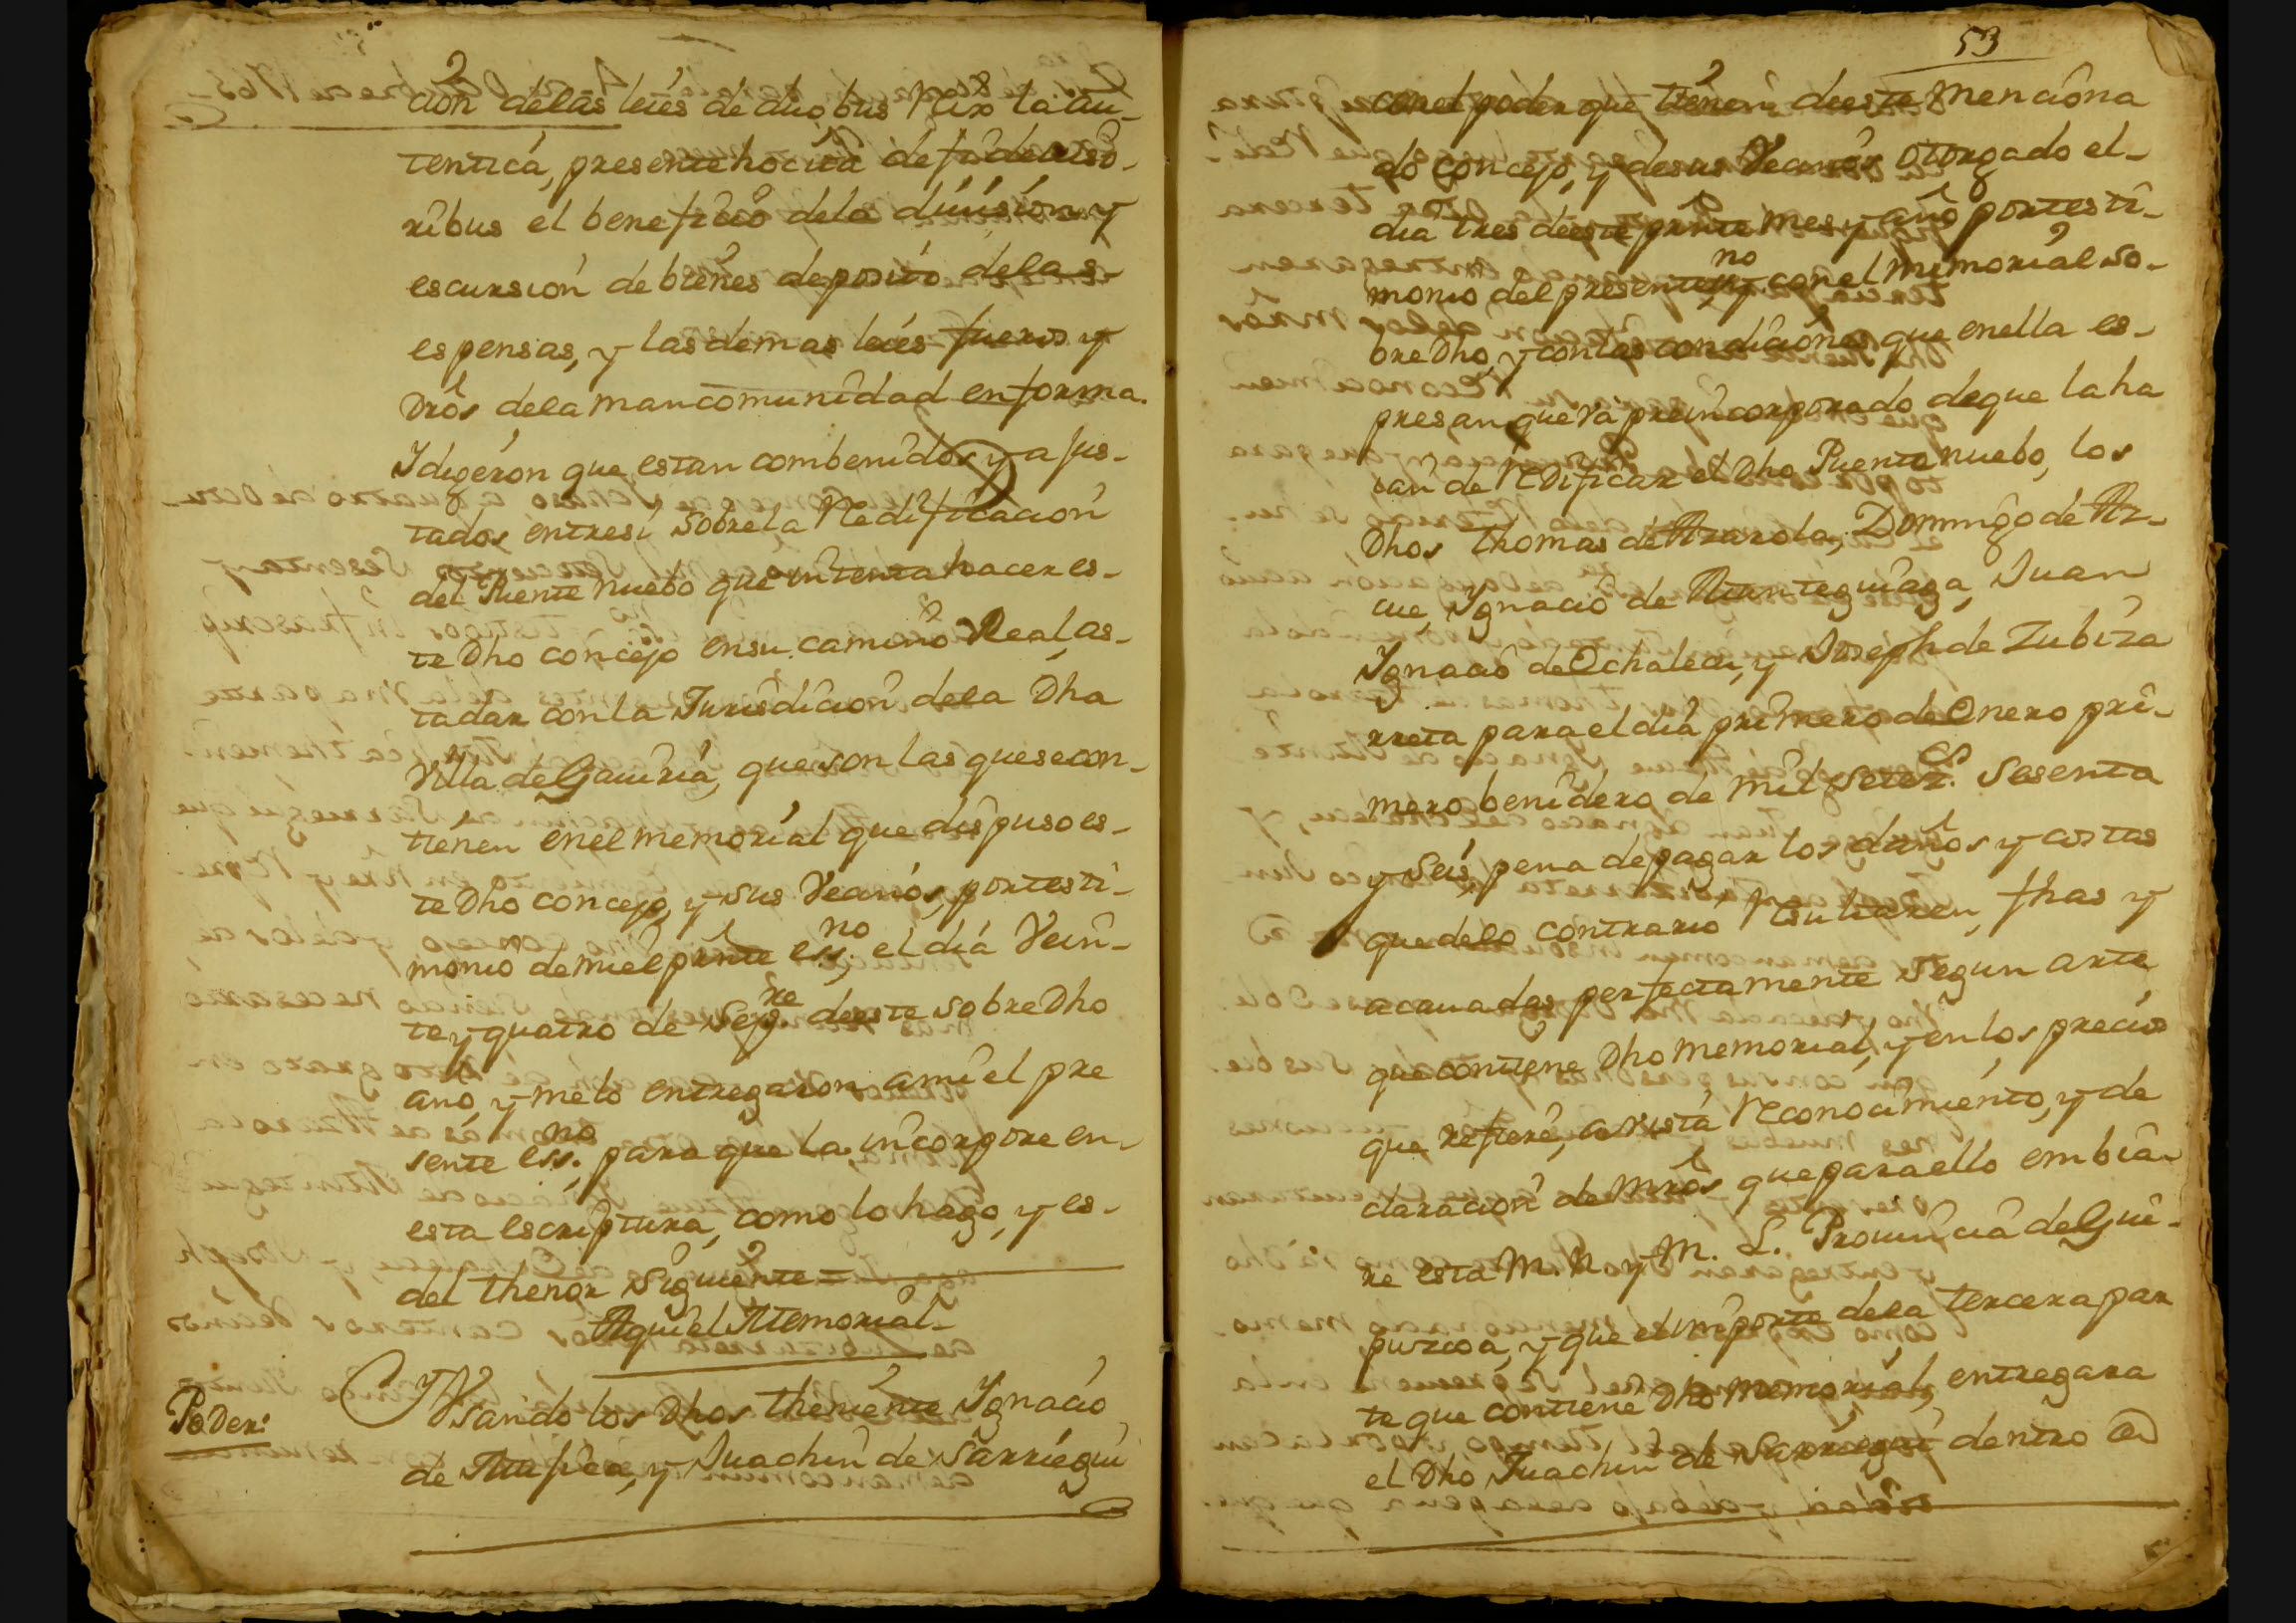 cion delas leies de duo bus Rex la au-
tentica, presente hocita defide iuso-
ribus el beneficio dela diuision y
escursion de bienes deposito delas
espensas, y las demas leies fueros y
dros dela mancomunidad en forma.
Y digeron que estan combenidos y a jus-
tados entresi sobrela Redificacion
del Puente nuebo que intenta hacer es-
te dho concejo ensu camino Real, as-
tadar conla Jurisdicion dela dha
Villa de Gauiria, que son las quesecon-
tienen enel memorial que dispuso es-
te dho concejo, y sus Vecinos, portesti-
monio demi el prnte essno el dia Vein-
te y quatro de Sepre deeste sobredho
año, y melo entregaron ami el pre
sente essno para que la incorpore en
esta escriptura, como lo hago, y es
del thenor siguiente=
Aqui el Memorial
Poder: Usando los dhos theniente Ygnacio
de Aufica, y Juachin de Sarriegui
53
con el poder que tienen deeste menciona
do concejo, y desus Vecinos otorgado el
dia tres deeste prnte mes y año portesti-
monio del presente no, y con el memorial so-
bredho, y conlas condiciones que enella es-
presan que va preincorporado deque la ha
ian de Redificar el dho Puente nuebo, los
dhos Thomas de Azarola, Domingo de Ar-
cue, Ygnacio de Aunteguiaga, Juan
Ygnacio de Ochalecu, y Joseph de Zubiza
rreta para el dia primero de Enero pri-
mero benidero de mil setezs. sesenta
y seis, pena depagar los daños y costas
que delo contrario Resultaren, fhas y
acauadas perfectamente segun arte
que contiene dho memorial, y en los precios
que refiere, a vista Reconocimiento, y de
claracion de mros que para ello embia-
re esta M. N. y M. L. Prouincia de Gui-
puzcoa, y que el importe dela tercera par
te que contiene dho memorial, entregara
el dho Juachin de Sarriegui dentro